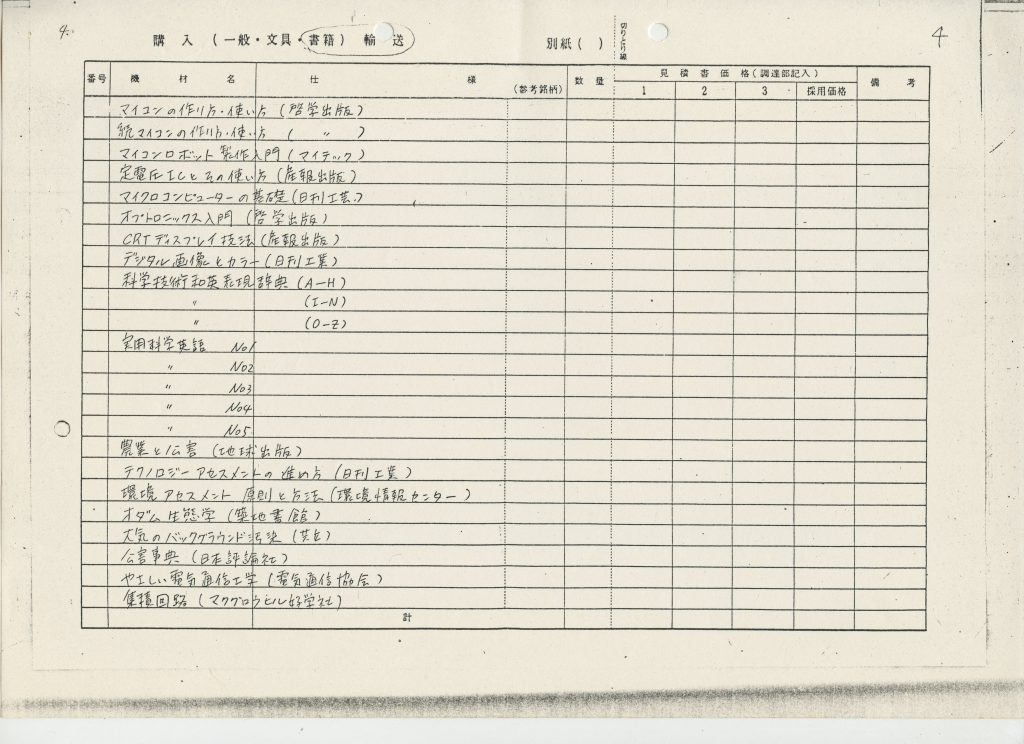 4.
購入（一般・文具・書籍）輸送
別紙（　）
切りとり線
4
番号 機材名 仕様 （参考銘柄） 数量 見積書価格（調達部記入） 備考
1 2 3 採用価格
マイコンの作り方・使い方（啓学出版）
続マイコンの作り方・使い方（　〃　）
マイコンロボット製作入門（マイテック）
定電圧ICとその使い方（産報出版）
マイクロコンピューターの基礎（日刊工芸.）
オプトロニックス入門（啓学出版）
CRTディスプレイ技法（産報出版）
デジタル画像とカラー（日刊工業）
科学技術和英表現辞典（A-H）
〃（I-N）
〃（O-Z）
実用科学英語 No1
〃 No2
〃 No3
〃 No4
〃 No5
農業と公害（地球出版）
テクノロジーアセスメントの進め方（日刊工業）
環境アセスメント 原則と方法（環境情報センター）
オダム生態学（築地書館）
大気のバックグラウンド汚染（共立）
公害事典（日本評論社）
やさしい電気通信工学（電気通信協会）
集積回路（マグロウヒル好学社）
計